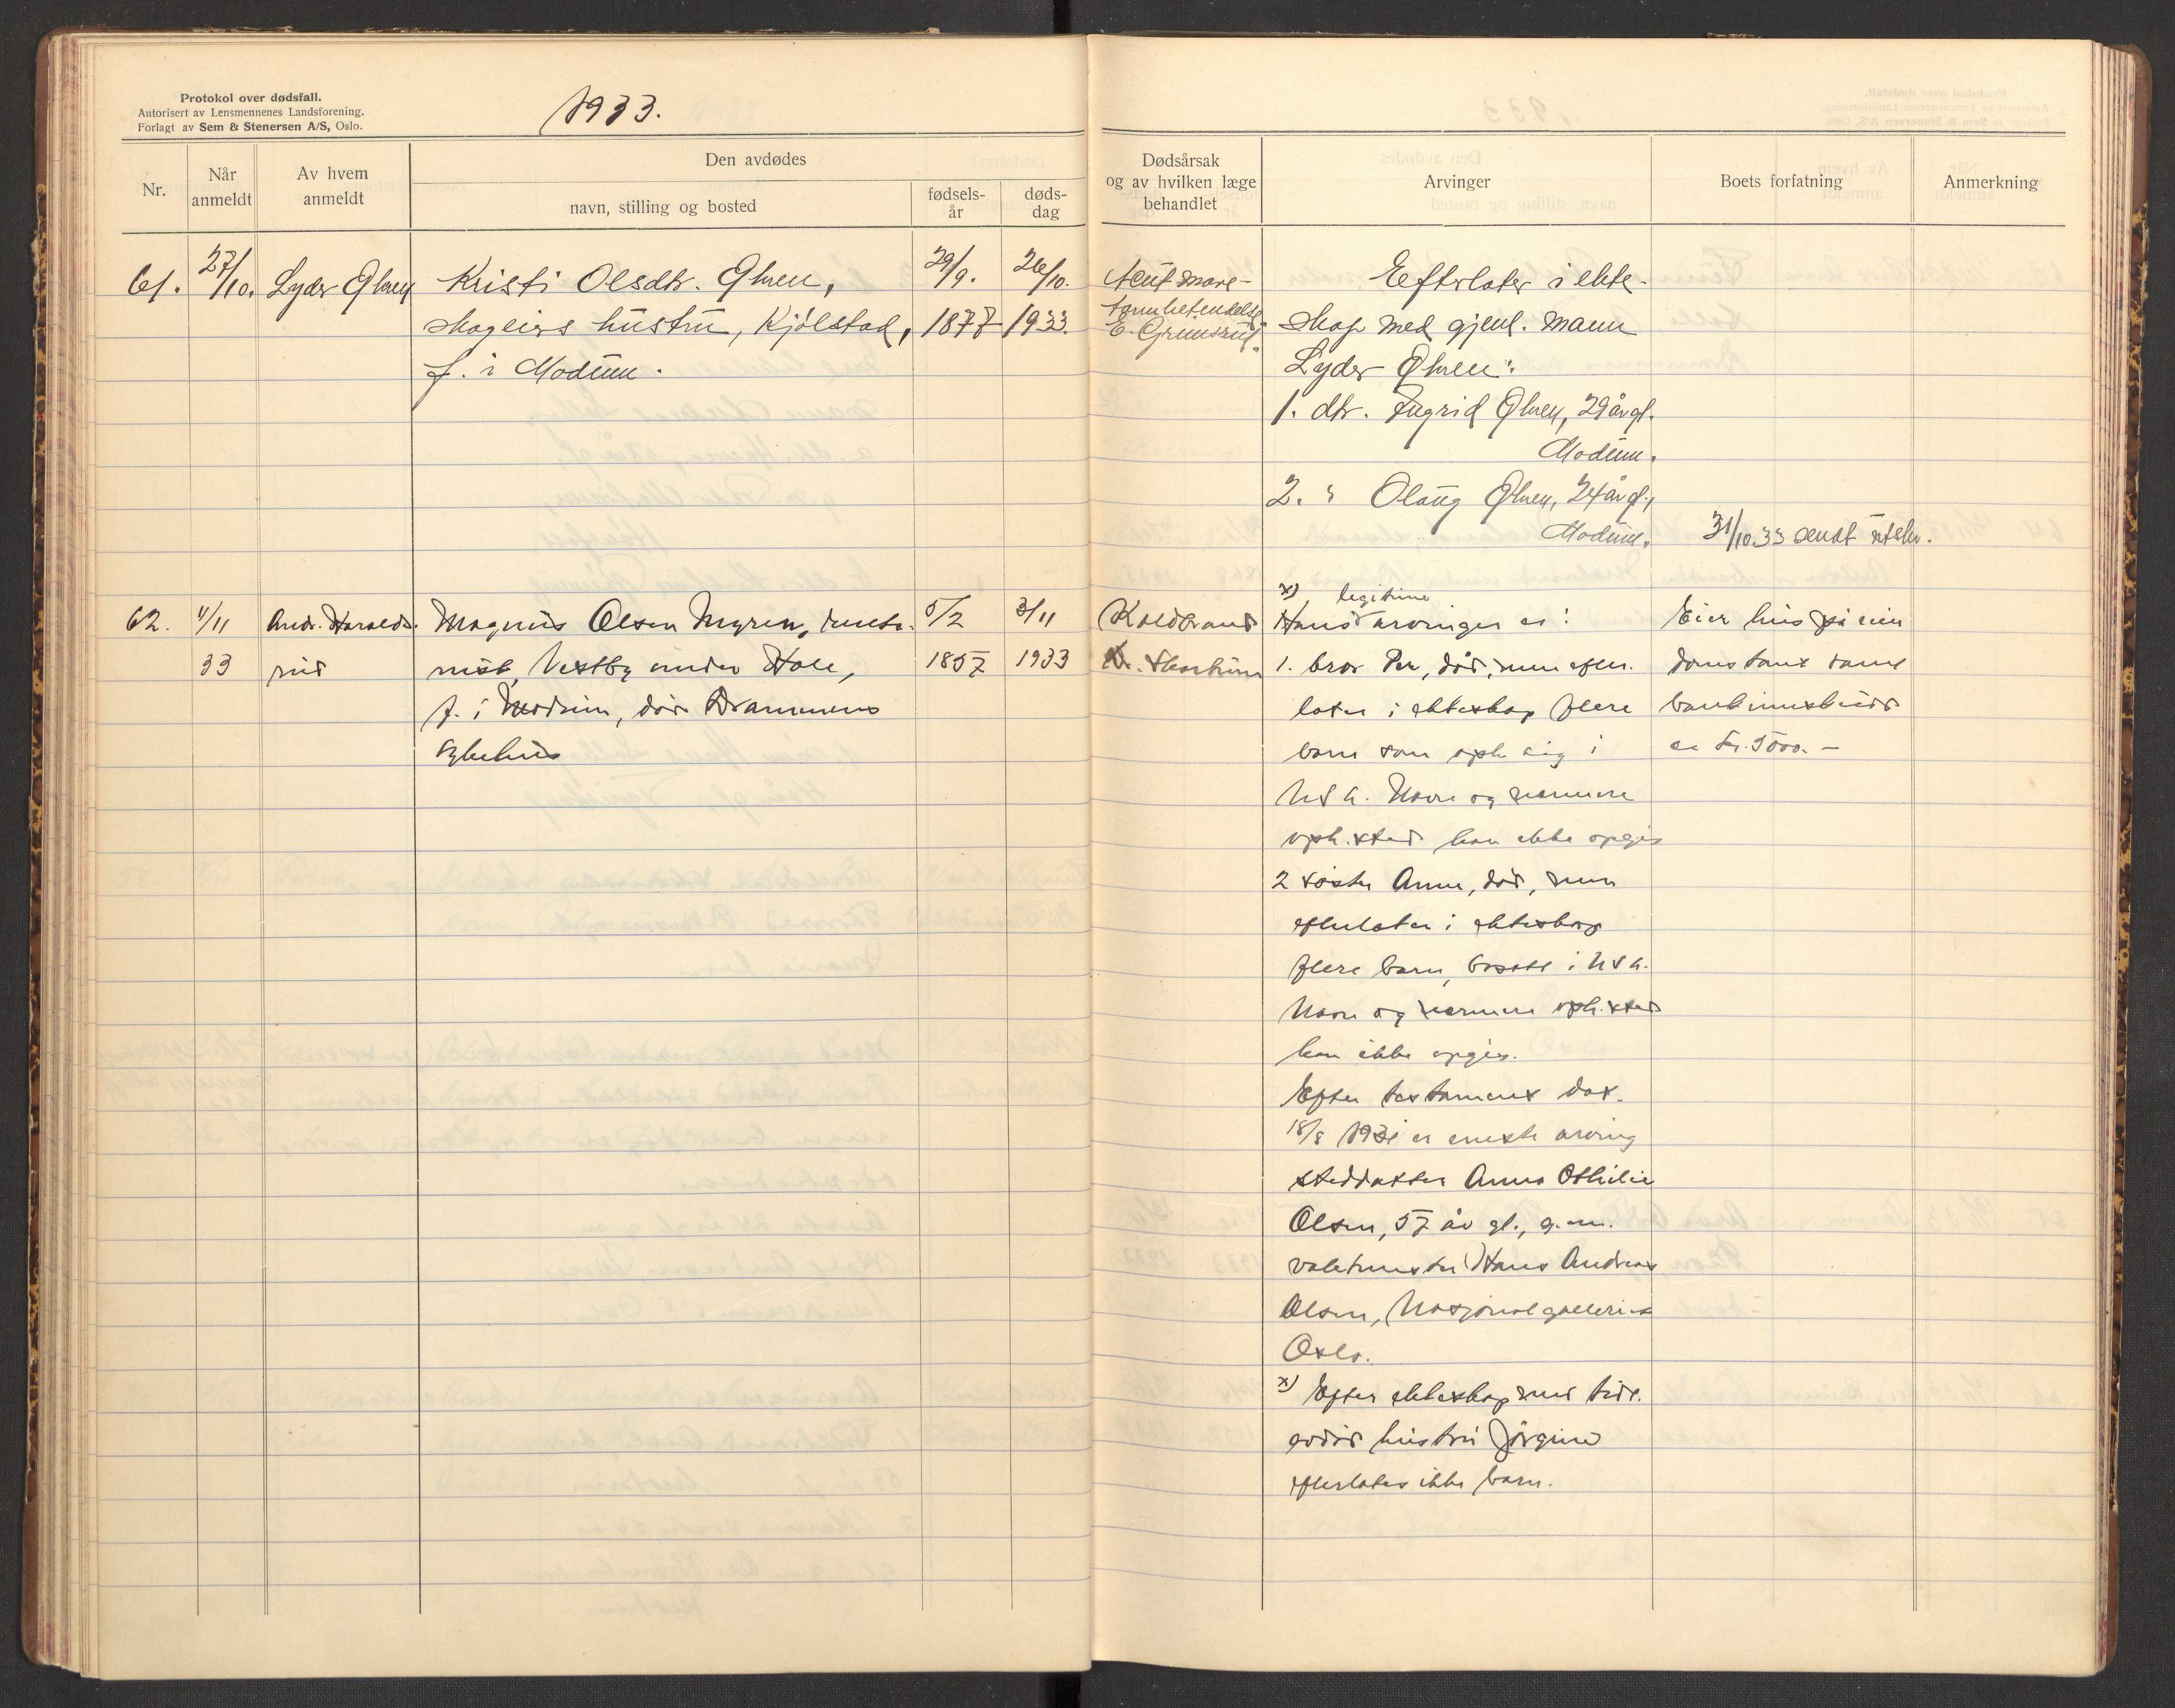 Protokol over dødsfall.
Autorisert av Lensmennenes Landsforening.
Forlagt av Sem & Stenersen A/S, Oslo.
1933.
Nr.
Når anmeldt
Av hvem anmeldt
Den avdødes
navn, stilling og bosted
fødsels-
år
døds-
dag
Dødsårsak
og av hvilken læge
behandlet
Arvinger
Boets forfatning
Anmerkning
61.
27/10.
Lyder Øhren
Kristi Olsdtr. Øhren,
skogeiers hustru, Kjølstad,
f. i Modum.
29/9.
1877
26/10.
1933.
Acut mave-
tarmbetendelse
E. Grimsrud.
Efterlater i ekte-
skap med gjenl. mann
Lyder Øhren:
1. dtr. Ingrid Øhren, 29 år gl.
Modum.
2. " Olaug Øhren, 24 år gl.,
Modum.
31/10.33 sendt utskr.
62.
4/11
33
Andr. Haralds-
rud
Magnus Olsen Myren,
Vestby under Hole,
f. i Modum, død Drammens
sykehus
5/2
1857
3/11
1933
Koldbrand
Dr.
x) legitime
Hans arvinger er:
1. bror Per, død, men efter-
later i ekteskap flere
barn som oph. sig i
USA. Navn og nærmere
oph.sted kan ikke opgis
2 søster Anne, død, men
efterlater i ekteskap
flere barn, bosatt i USA.
Navn og nærmere oph.sted
kan ikke opgis.
Efter testament dat.
18/8 1931 er eneste arving
steddatter Anna Othilie
Olsen, 57 år gl., g.m.
vaktmester Hans Andreas
Olsen, Nasjonalgalleriet
Oslo.
x) Efter ekteskap med tidl.
avdød hustru Jørgine
efterlates ikke barn.
Eier hus på eien-
doms tomt samt
bankinnskudd
ca kr. 5000.-